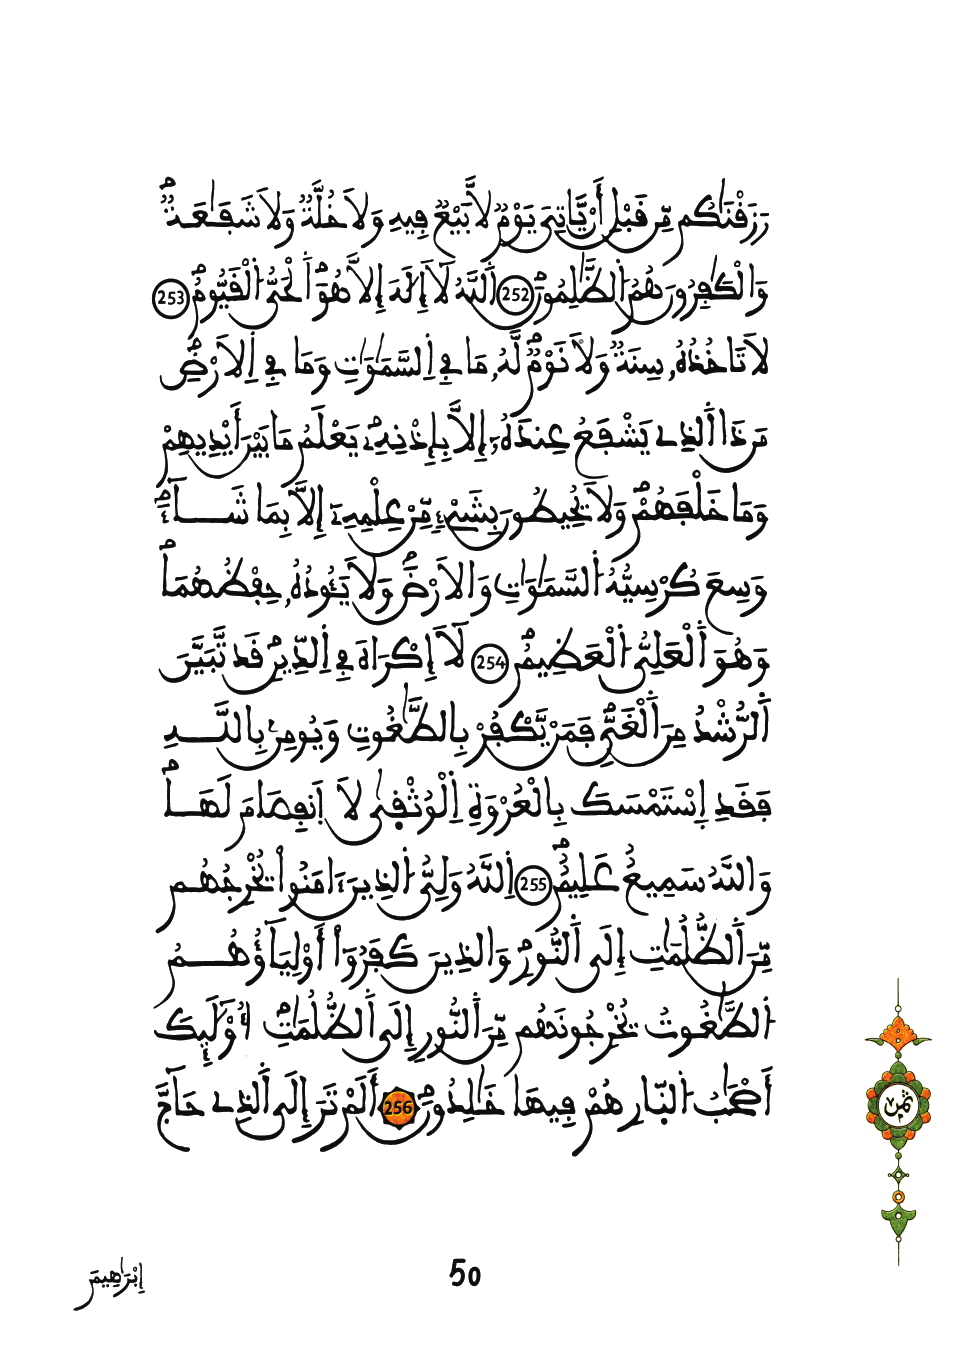 رَزَقْنَٰكُم مِّن قَبْلِ أَنْ يَّاتِىَ يَوْمٌ لَّا بَيْعٌ فِيهِ وَلَا خُلَّةٌ وَلَا شَفَٰعَةٌ
وَالْكَٰفِرُونَ هُمُ الظَّٰلِمُونَ 252 اَللَّهُ لَآ إِلَٰهَ إِلَّا هُوَ اَلْحَىُّ الْقَيُّومُ 253
لَا تَاخُذُهُۥ سِنَةٌ وَلَا نَوْمٌ لَّهُۥ مَا فِى اِلسَّمَٰوَٰتِ وَمَا فِى اِلَارْضِ
مَن ذَا اَلذِى يَشْفَعُ عِندَهُۥٓ إِلَّا بِإِذْنِهِۦ يَعْلَمُ مَا بَيْنَ أَيْدِيهِمْ
وَمَا خَلْفَهُمْ وَلَا يُحِيطُونَ بِشَىْءٍ مِّنْ عِلْمِهِۦٓ إِلَّا بِمَا شَآءَ
وَسِعَ كُرْسِيُّهُ السَّمَٰوَٰتِ وَالَارْضَ وَلَا يَـُٔودُهُۥ حِفْظُهُمَا
وَهُوَ اَلْعَلِىُّ الْعَظِيمُ 254 لَآ إِكْرَاهَ فِى اِلدِّينِ قَد تَّبَيَّنَ
اَلرُّشْدُ مِنَ اَلْغَىِّ فَمَنْ يَّكْفُرْ بِالطَّٰغُوتِ وَيُومِنۢ بِاللَّهِ
فَقَدِ اِسْتَمْسَكَ بِالْعُرْوَةِ اِلْوُثْقِىٰ لَا اَنفِصَامَ لَهَا
وَاللَّهُ سَمِيعٌ عَلِيمٌ 255 اِللَّهُ وَلِىُّ الذِينَ ءَامَنُوا يُخْرِجُهُم
مِّنَ اَلظُّلُمَٰتِ إِلَى اَلنُّورِ وَالذِينَ كَفَرُوٓا أَوْلِيَآؤُهُمُ
الطَّٰغُوتُ يُخْرِجُونَهُم مِّنَ اَلنُّورِ إِلَى اَلظُّلُمَٰتِ أُوْلَٰٓئِكَ
أَصْحَٰبُ النّ۪ارِ هُمْ فِيهَا خَٰلِدُونَ 256 أَلَمْ تَرَ إِلَى اَلذِى حَآجَّ
ثمن
إِبْرَٰهِيمَ
50